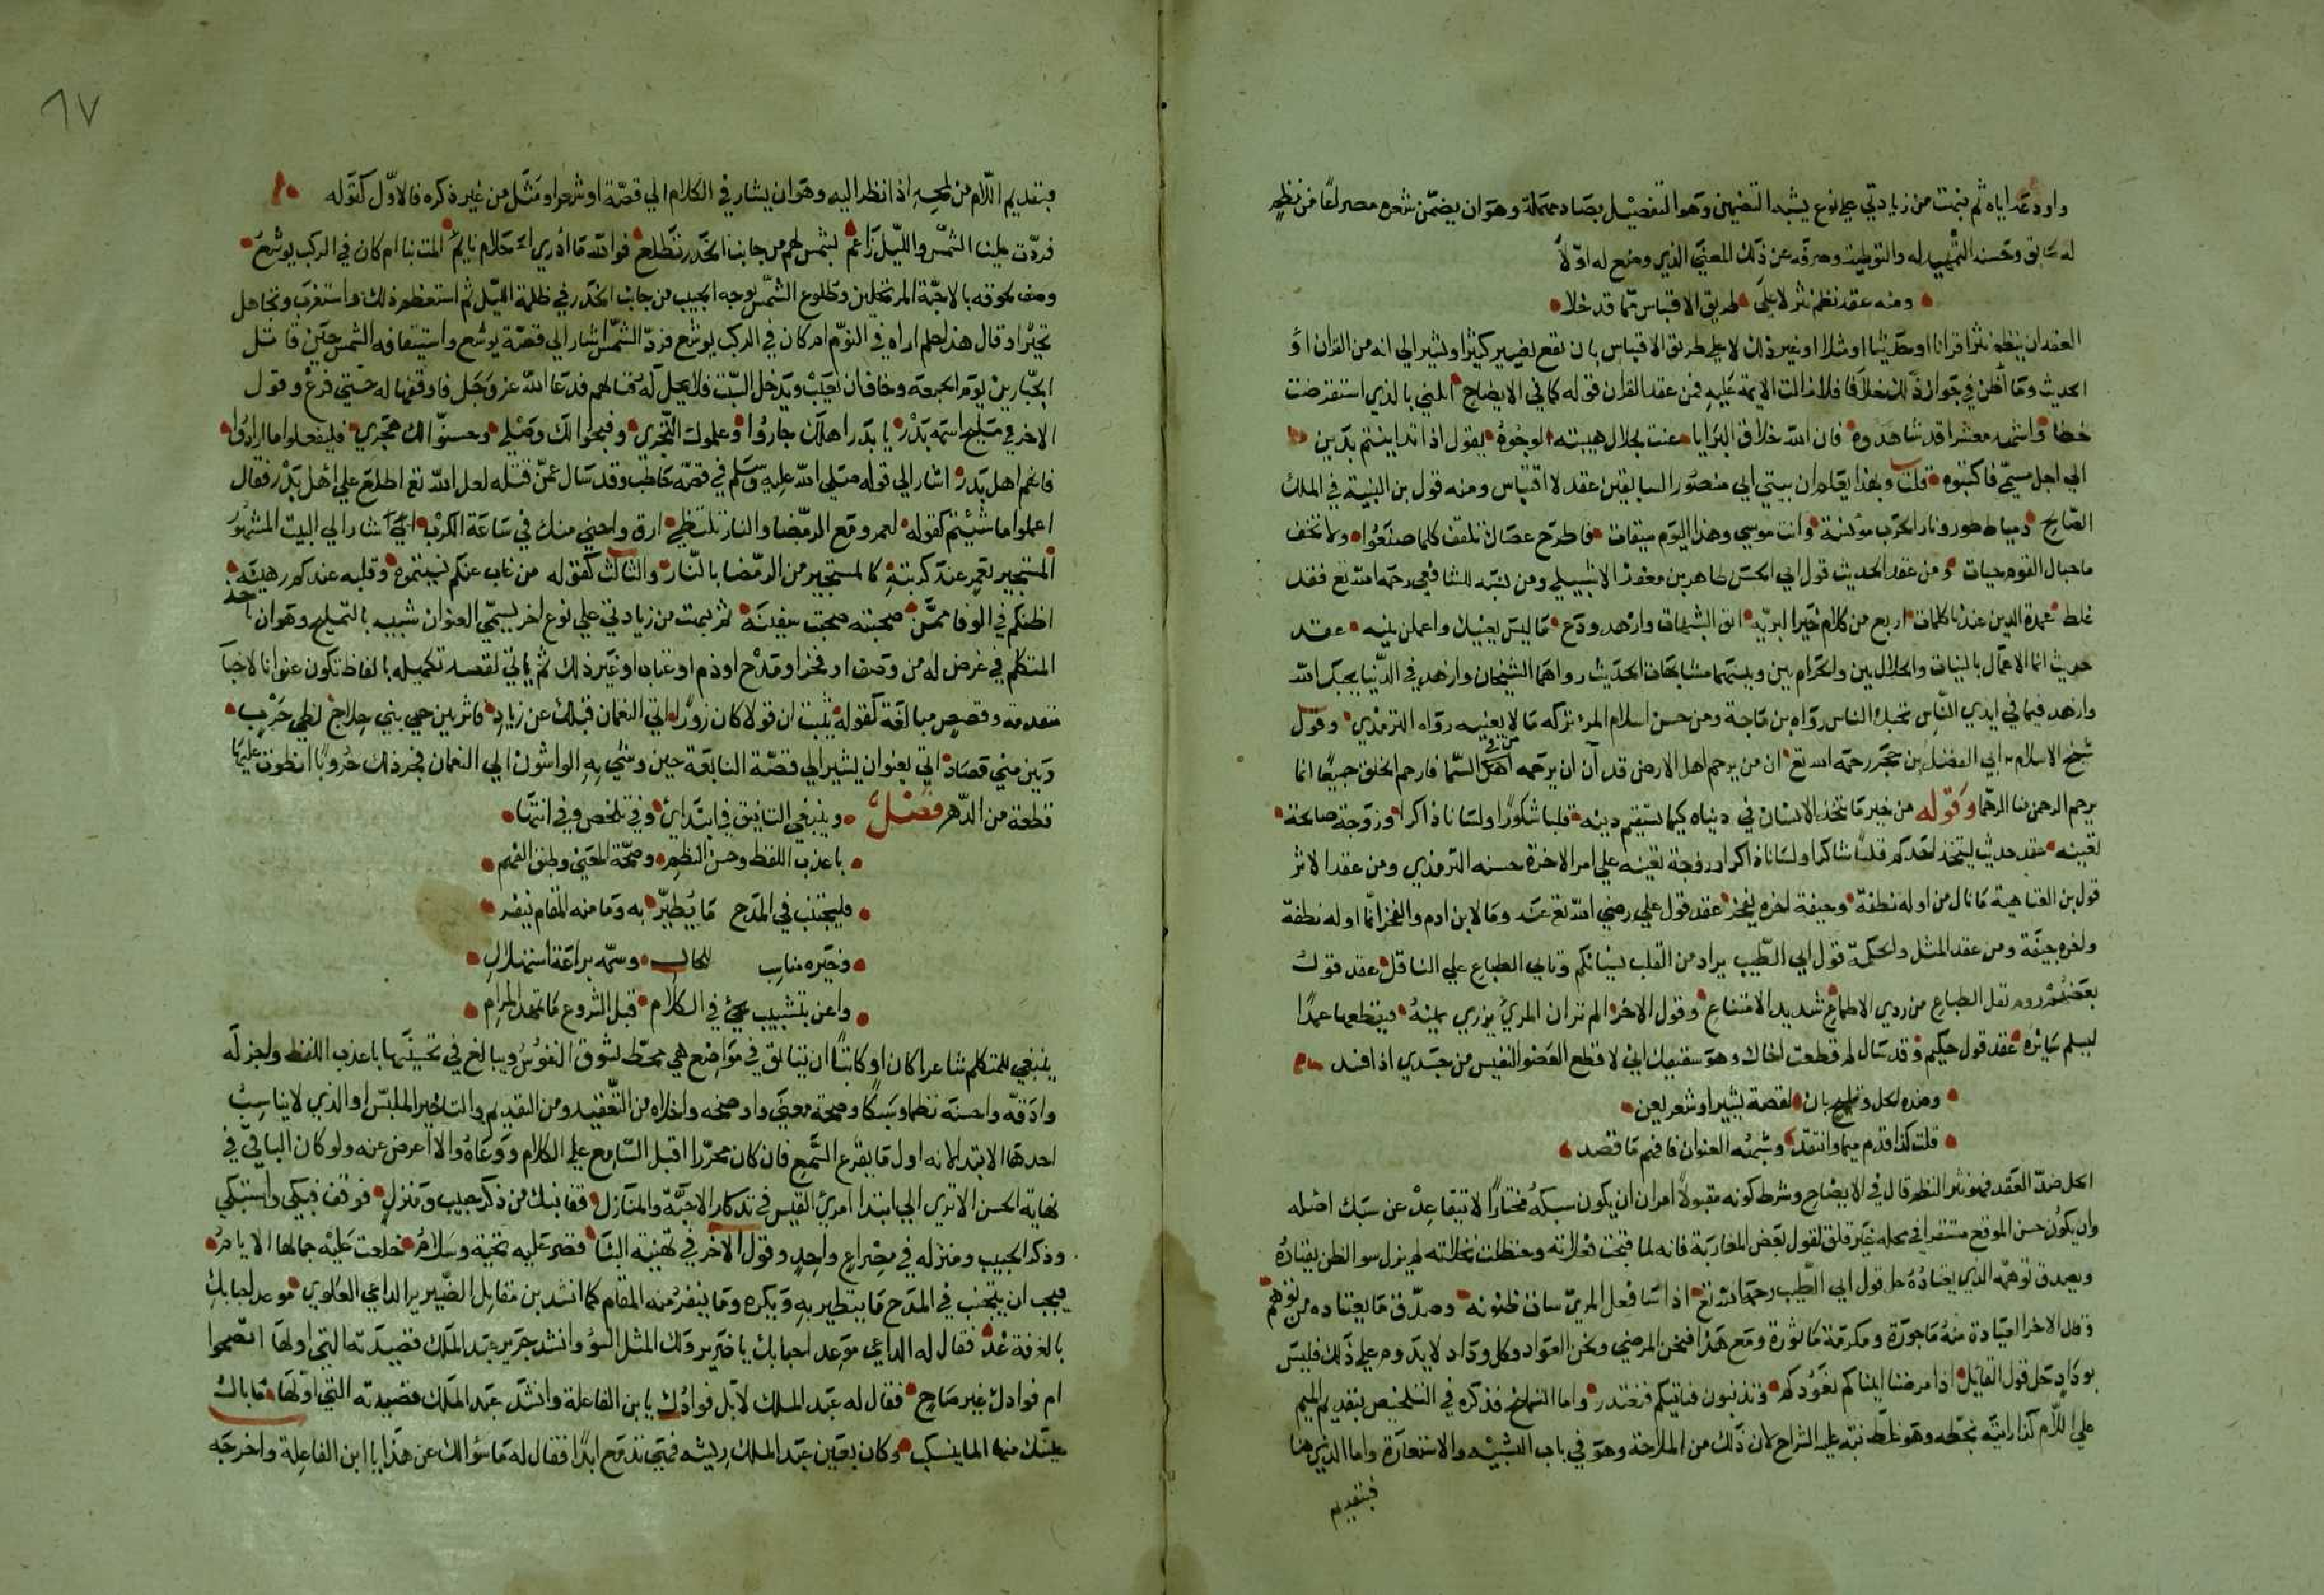 واودعه اياه ثم نبهت من زيادتي علي نوع يشبه التضمين وهو التفصيل بصاد مهملة وهو ان يضمن شعره مصراعا من نظم
له سابق وحسنه التمهيد له والتوطية وصرفه عن ذلك المعني الذي وضع له اولا
ومنه عقد نظم نثر لا علي طريق الاقتباس مما قد خلا
العقد ان ينظم نثرا قرانا او حديثا او مثلا او غير ذلك لا علي طريق الاقتباس بان يقع بغيير كثيرا ويشير الي انه من القران او
الحديث وما اظن في جواز ذلك خلافا فلا زالت الايمة عليه فمن عقد القران قوله كما في الايضاح انلني بالذي استقرضت
خطا واشهد معشرا قد شاهدوه فان الله خلاق البرايا عنت لجلال هيبته الوجوه يقول اذا تداينتم بدين
الي اجل مسمي فاكتبوه قلت وبهذا يعلم ان بيتي ابي منصور السابقين عقد لا اقتباس ومنه قول بن النبيه في الملك
الصالح دمياط طور ونار الحرب مؤنسة وانت موسي وهذا اليوم ميقات فاطرح عصاك تلقف كلما صنعوا ولا تخف
ما حبال القوم حيات ومن عقد الحديث قول ابي الحسن طاهر بن معفوز الاشبيلي ومن نسبه للشافعي رحمه الله تع فقد
غلط عمدة الدين عندنا كلمات اربع من كلام خير البريه اتق الشبهات وازهد ودع ما ليس يعنيك واعملن بنيه عقد
حديث انما الاعمال بالنيات والحلال بين والحرام بين وبينهما مشابهات الحديث رواهما الشيخان وازهد في الدنيا يحبك الله
وازهد فيما في ايدي الناس يحبك الناس رواه بن ماجة ومن حسن اسلام المرء تركه ما لا يعنيه رواه الترمذي وقول
شيخ الاسلام ابي الفضل بن حجر رحمه الله تع ان من يرحم اهل الارض قد آن ان يرحمه من في السما فارحم الخلق جميعا انما
يرحم الرحمن منا الرحما وقوله من خير ما يتخذ الانسان في دنياه كيما يستقيم دينه قلبا شكورا ولسانا ذاكرا وزوجة صالحة
تعينه عقد حديث ليتخذ احدكم قلبا شاكرا ولسانا ذاكرا وزوجة تعينه علي امر الاخرة حسنه الترمذي ومن عقد الاثر
قول بن العتاهية ما بال من اوله نطفة وجيفة اخره يفخر عقد قول علي رضي الله تع عنه وما لابن ادم والفخر انما اوله نطفة
واخره جيفة ومن عقد المثل والحكمة قول ابي الطيب يراد من القلب نسيانكم وتابي الطباع علي الناقل عقد قول
بعضهم روم نقل الطباع من ردي الاطماع شديد الامتناع وقول الاخر الم تر ان المرء يزري يمينه فيقطعها عمدا
ليسلم سائره عقد قول حكيم وقد سال لم قطعت اخاك وهو شقيقك اني لاقطع العضو النفيس من جسدي اذا فسد
وضده الحل وتلميح بان لقصة يشير او شعر يعن
قلت كذا قدم ميما وانتقد وشبهه العنوان فافهم ما قصد
الحل ضد العقد فهو نثر النظم قال في الايضاح وشرط كونه مقبولا امران ان يكون سبكه مختارا لا تتقاعد عن سبك اصله
وان يكون حسن الموقع مستقرا في محله غير قلق لقول بعض المغاربة فانه لما قبحت فعلاته وحنظلت نخلاته لم يزل سو الظن يقتاده
ويصدق توهمه الذي يعتاده حل قول ابي الطيب رحمه الله تع اذا سا فعل المرء سات ظنونه وصدق ما يعتاده من توهم
وقال الاخر العيادة سنة ماجورة ومكرمة ماثورة ومع هذا فنحن المرضي ونحن العواد وكل وداد لا يدوم علي ذلك فليس
بوداد حل قول القايل اذا مرضنا اتيناكم نعودكم وتذنبون فناتيكم فنعتذر واما التلميح فذكره في التلخيص بتقديم الميم
علي اللام كذا رايته بخطه وهو غلط نبه عليه الشراح لان ذلك من الملاحة وهو في باب التشبيه والاستعارة واما الذي هنا
فبتقديم
٦٧
فبتقديم اللام من لمحه اذا نظر اليه وهو ان يشار في الكلام الي قصة او شعر او مثل من غير ذكره فالاول كقوله
فردت علينا الشمس والليل راغم بشمس لهم من جانب الخدر تطلع فوالله ما ادري احلام نايم المت بنا ام كان في الركب يوشع
وصف لحوقه بالاحبة المرتحلين وطلوع الشمس بوجه الحبيب من جانب الخدر في ظلمة الليل ثم استعظم ذلك واستغرب وتجاهل
تحيرا وقال هذا حلم اراه في النوم ام كان في الركب يوشع فرد الشمس اشار الي قصة يوشع واستيقافه الشمس حين قاتل
الجبارين يوم الجمعة وخاف ان تغيب ويدخل السبت فلا يحل له قتالهم فدعا الله عز وجل فاوقفها له حتي فرغ وقول
الاخر في مليح اسمه بدر يا بدر اهلك جاروا وعلموك التجري وقبحوا لك وصلي وحسنوا لك هجري فليفعلوا ما ارادوا
فانهم اهل بدر اشار الي قوله صلي الله عليه وسلم في قصة حاطب وقد سال عمر قتله لعل الله تع اطلع علي اهل بدر فقال
اعملوا ما شئتم كقوله لعمرو مع الرمضا والنار تلتظي ارق واحني منك في ساعة الكرب اشار الي البيت المشهور
المستجير بعمرو عند كربته كالمستجير من الرمضا بالنار والثالث كقوله من غاب عنكم نسيتموه وقلبه عندكم رهينه
اظنكم في الوفا ممن صحبته صحبت سفينة ثم نبهت من زيادتي علي نوع اخر يسمي العنوان شبيه بالتلميح وهو ان ياخذ
المتكلم في غرض له من وصف او فخر او مدح او ذم او عتاب او غير ذلك ثم ياتي لقصد تكميله بالفاظ تكون عنوانا لاخبار
متقدمة وقصص سالفة كقوله يثبت ان قولا كان زورا اتي النعمان قبلك عن زياد فاثر بين حي بني جلاح لظي حرب
وبين بني مصاد اتي بعنوان يشير الي قصة النابغة حين وشي به الواشون الي النعمان فجر ذلك حروبا انطوت عليها
قطعة من الدهر فصل وينبغي التانيق في ابتداء وفي تخلص وفي انتها
باعذب اللفظ وحسن النظم وصحة المعني وطبق الفهم
فليجتنب في المدح ما يُطير به وما منه المقام ينفر
وخيره مناسب للحال وسمه براعة استهلال
واعن بتشبيب يجي في الكلام قبل الشروع ما تمهد المرام
ينبغي للمتكلم شاعرا كان او كاتبا ان يتانق في مواضع هي محط لشوق النفوس ويبالغ في تحسينها باعذب اللفظ واجزله
وادقه واحسنه نظما وسبكا وصحة معني واوضحه واخلاه من التعقيد ومن التقديم والتاخير الملبس او الذي لا يناسب
احدها الابتدا لانه اول ما يقرع السمع فان كان محررا اقبل السامع علي الكلام ووعاه والا اعرض عنه ولو كان الباقي في
نهاية الحسن الا تري الي ابتدا امرئ القيس في تذكار الاحبة والمنازل قفا نبك من ذكري حبيب ومنزل فوقف فبكي واستبكي
وذكر الحبيب ومنزله في مصراع واحد وقول الاخر في تهنية البنا قصر عليه تحية وسلام خلعت عليه جمالها الايام
فيجب ان يجتنب في المدح ما يتطير به ويكره وما ينفر منه المقام كما انشد بن مقاتل الضرير الداعي العلوي موعد احبابك
بالفرقة غد فقال له الداعي موعد احبابك يا ضرير ولك المثل السوء وانشد جرير عبد الملك قصيدته التي اولها اتصحوا
ام فوادك غير صاح فقال له عبد الملك لا بل فوادك يا بن الفاعلة وانشد عبد الملك قصيدته التي اولها ما بال
عينك منها الماء ينسكب وكان بعين عبد الملك ريشه فهي تدمع ابدا فقال له ما سؤالك عن هذا يا ابن الفاعلة واخرجه